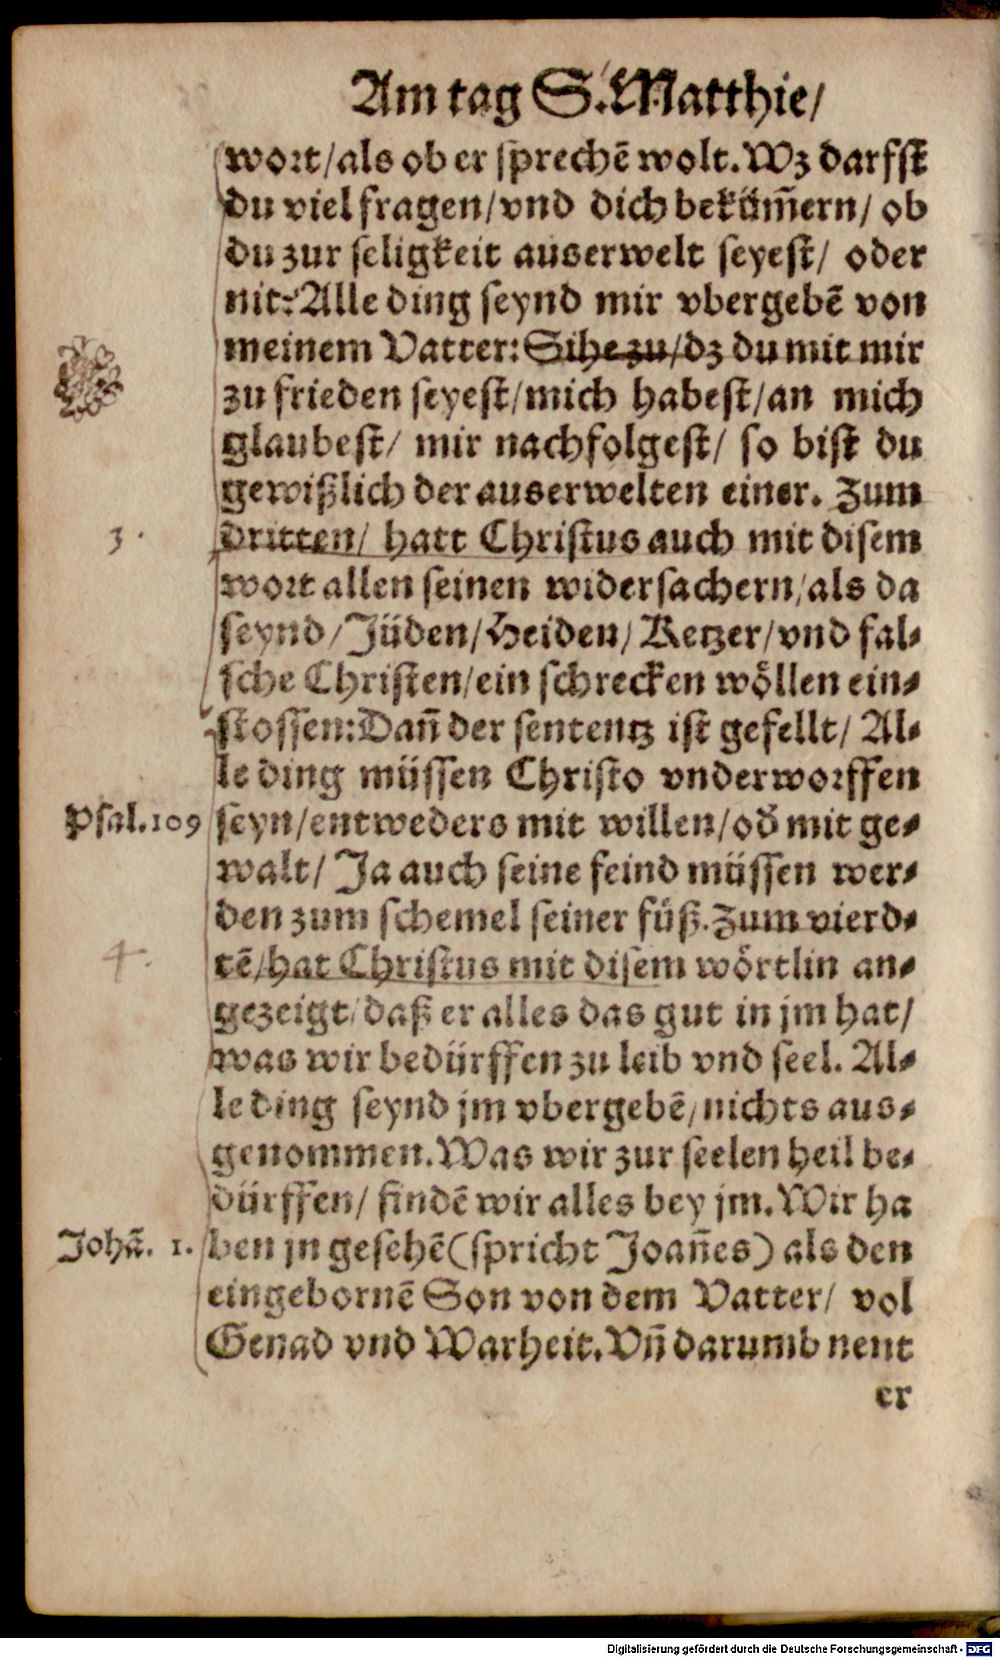 Am tag S. Matthie/
wort/als ob er sprechẽ wolt. Wz darfst
du viel fragen/vnd dich bekům̃ern/ ob
du zur seligkeit auserwelt seyest/ oder
nit? Alle ding seynd mir vbergebẽ von
meinem Vatter: Sihe zu/dz du mit mir
zu frieden seyest/mich habest/an mich
glaubest/ mir nachfolgest/ so bist du
gewißlich der auserwelten einer. Zum
3.
dritten/ hatt Christus auch mit disem
wort allen seinen widersachern/als da
seynd/Jüden/Heiden/Ketzer/vnd fal-
sche Christen/ein schrecken wöllen ein-
stossen: Dañ der sententz ist gefellt/ Al-
le ding müssen Christo vnderworffen
Psal. 109
seyn/entweders mit willen/oď mit ge-
walt/ Ja auch seine feind müssen wer-
den zum schemel seiner füß. Zum vierd-
4.
tẽ/hat Christus mit disem wörtlin an-
gezeigt/daß er alles das gut in jm hat/
was wir bedürffen zu leib vnd seel. Al-
le ding seynd jm vbergebẽ/nichts aus-
genommen. Was wir zur seelen heil be-
dürffen/ findẽ wir alles bey jm. Wir ha
Johã. 1.
ben jn gesehẽ (spricht Joañes) als den
eingebornẽ Son von dem Vatter/ vol
Genad vnd Warheit. Vñ darumb nent
er
Digitalisierung gefördert durch die Deutsche Forschungsgemeinschaft - DFG